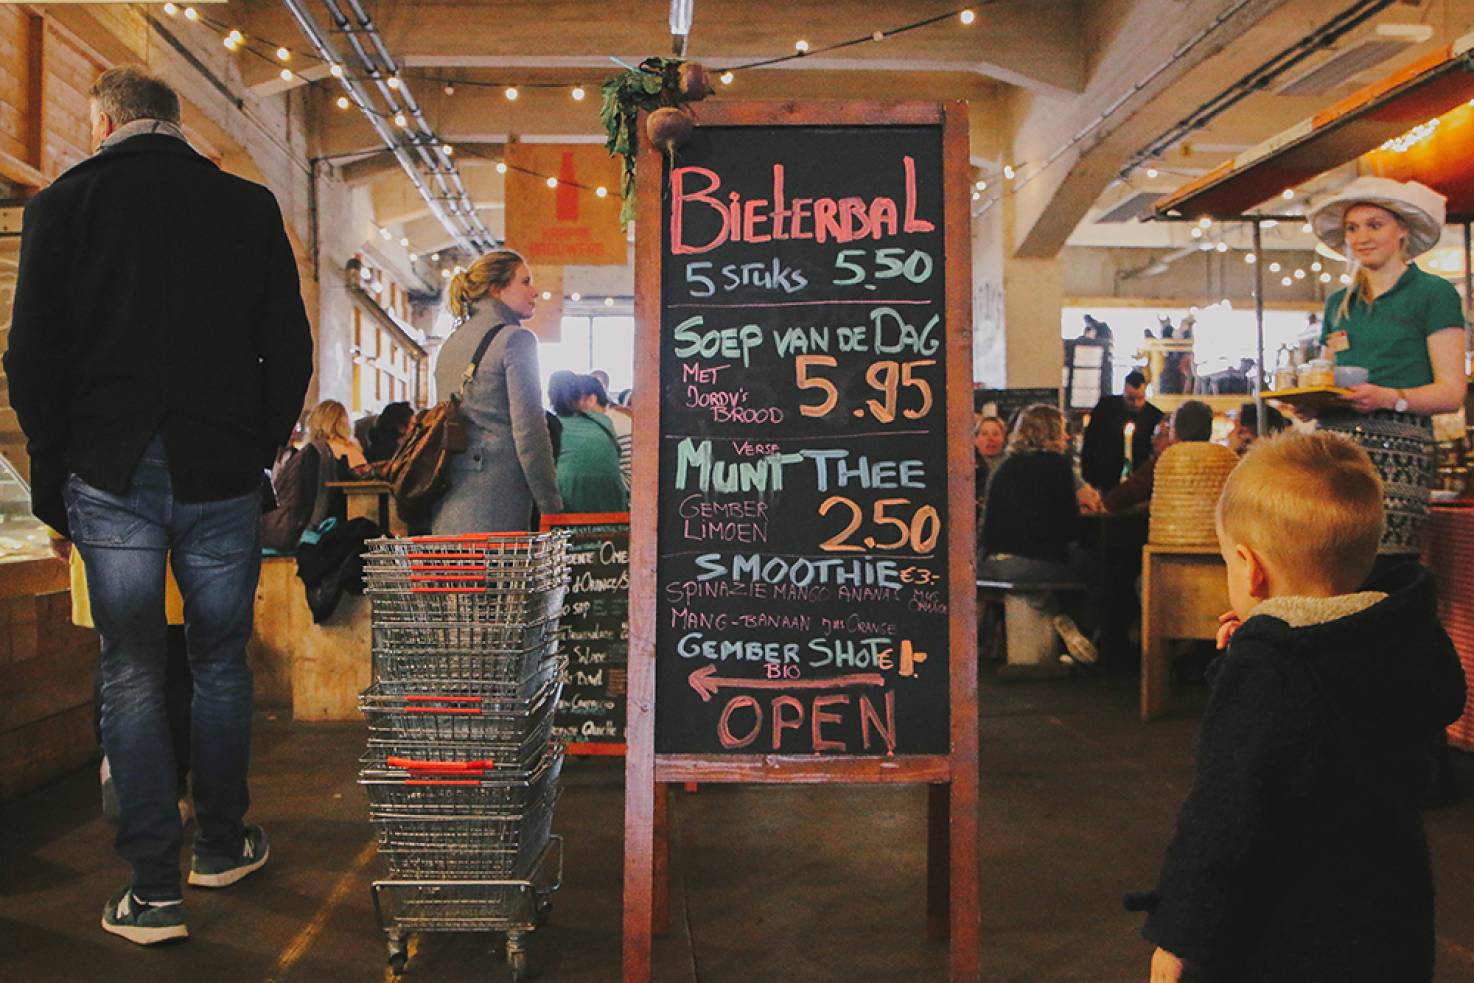 BIETERBAL
5 STUKS 5.50
SOEP VAN DE DAG
MET JORDY'S BROOD 5.95
VERSE
MUNT THEE
GEMBER LIMOEN 2.50
SMOOTHIE €3.-
SPINAZIE MANGO ANANAS
MANG-BANAAN ORANGE
GEMBER SHOT € 1.-
BIO
OPEN